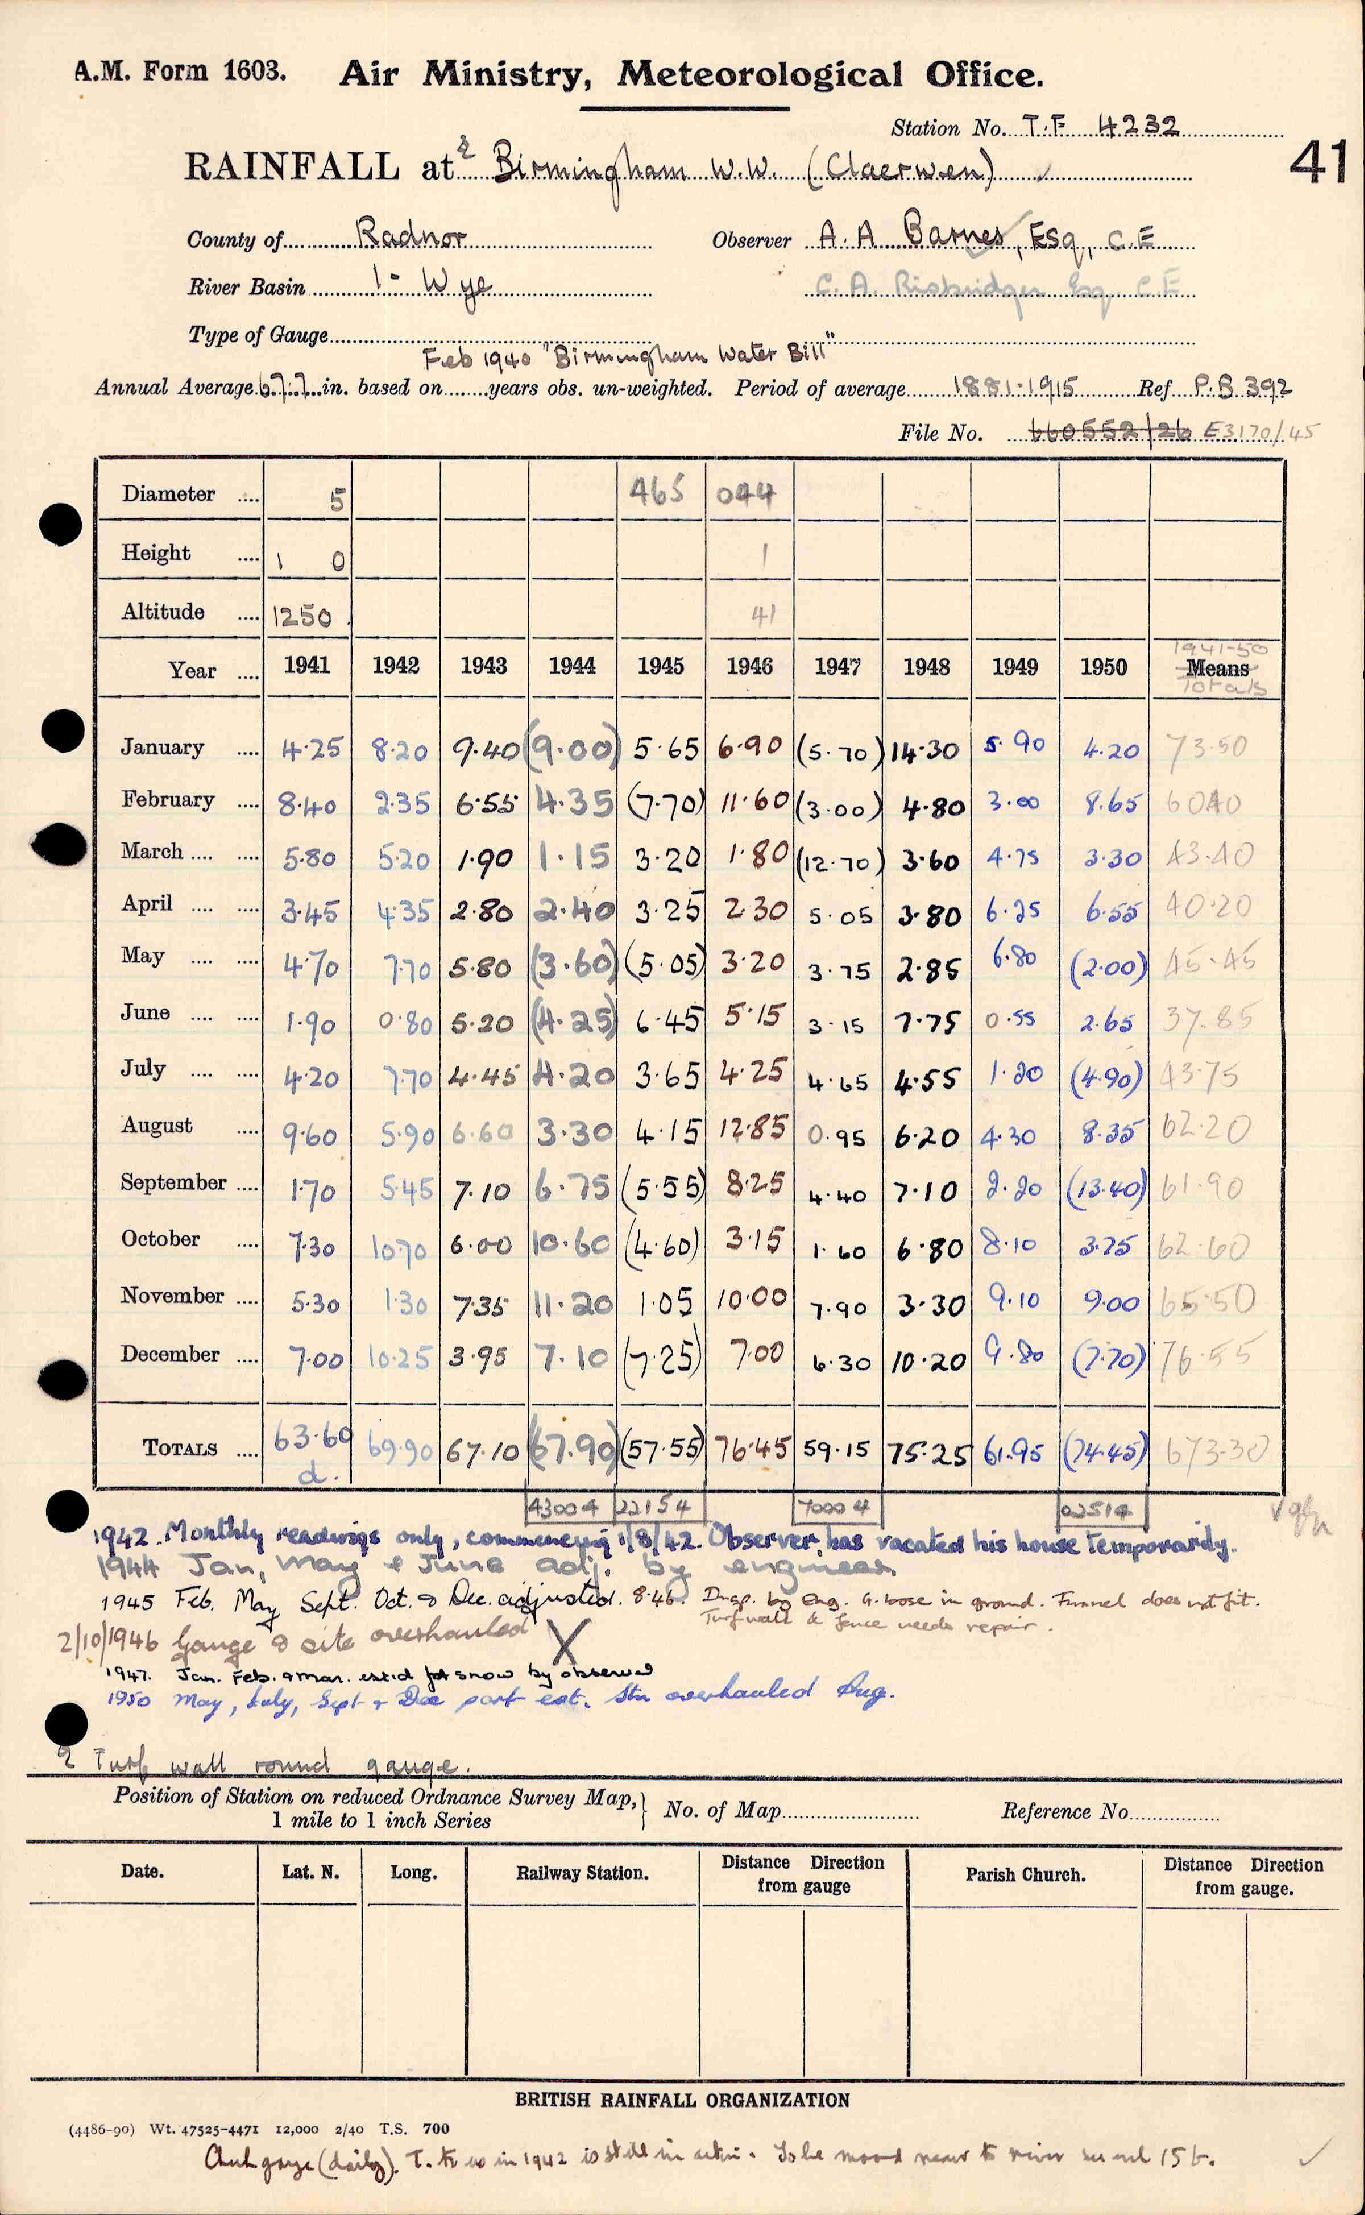 A.M. Form 1603. Air Ministry, Meteorological Office.
Station No. T.F 4232
41
RAINFALL at 2 Birmingham W.W. (Claerwen) ✓
County of Radnor Observer A. A Barnes, Esq, C.E
River Basin 1 - Wye C. A. Risbridger Esq. C.E
Type of Gauge
Feb 1940 "Birmingham Water Bill"
Annual Average 67.7 in. based on years obs. un-weighted. Period of average 1881-1915 Ref P.B 392
File No. 660552/26 E3170/45
Diameter 5 465 044
Height 1 0 1
Altitude 1250 41
1941-50
Year 1941 1942 1943 1944 1945 1946 1947 1948 1949 1950 Means
Totals
January 4.25 8.20 9.40 (9.00) 5.65 6.90 (5.70) 14.30 5.90 4.20 73.50
February 8.40 2.35 6.55 4.35 (7.70) 11.60 (3.00) 4.80 3.00 8.65 60.40
March 5.80 5.20 1.90 1.15 3.20 1.80 (12.70) 3.60 4.75 3.30 43.40
April 3.45 4.35 2.80 2.40 3.25 2.30 5.05 3.80 6.25 6.55 40.20
May 4.70 7.70 5.80 (3.60) (5.05) 3.20 3.75 2.85 6.80 (2.00) 45.45
June 1.90 0.80 5.20 (4.25) 6.45 5.15 3.15 7.75 0.55 2.65 37.85
July 4.20 7.70 4.45 4.20 3.65 4.25 4.65 4.55 1.20 (4.90) 43.75
August 9.60 5.90 6.60 3.30 4.15 12.85 0.95 6.20 4.30 8.35 62.20
September 1.70 5.45 7.10 6.75 (5.55) 8.25 4.40 7.10 2.20 (13.40) 61.90
October 7.30 10.70 6.00 10.60 (4.60) 3.15 1.60 6.80 8.10 3.75 62.60
November 5.30 1.30 7.35 11.20 1.05 10.00 7.90 3.30 9.10 9.00 65.50
December 7.00 10.25 3.95 7.10 (7.25) 7.00 6.30 10.20 9.80 (7.70) 76.55
TOTALS 63.60 69.90 67.10 (67.90) (57.55) 76.45 59.15 75.25 61.95 (74.45) 673.30
d.
43004 22154 70004 02514
1942. Monthly readings only, commencing 1/8/42. Observer has vacated his house Temporarily.
1944 Jan, May & June adj. by engineer
1945 Feb. May Sept. Oct. & Dec. adjusted. 8.46. Insp. by Eng. G. loose in ground. Funnel does not fit.
Turf wall & fence needs repair.
2/10/1946 Gauge & site overhauled X
1947. Jan. Feb. & Mar. est'd for snow by observer
1950 May, July, Sept & Dec part est. Stn overhauled Aug.
2 Turf wall round gauge.
Position of Station on reduced Ordnance Survey Map,} No. of Map Reference No.
1 mile to 1 inch Series
Date. Lat. N. Long. Railway Station. Distance Direction from gauge Parish Church. Distance Direction from gauge.
BRITISH RAINFALL ORGANIZATION
(4486-90) Wt. 47525-4471 12,000 2/40 T.S. 700
gauge (daily). in 1942 is still in To be moved near to river ✓